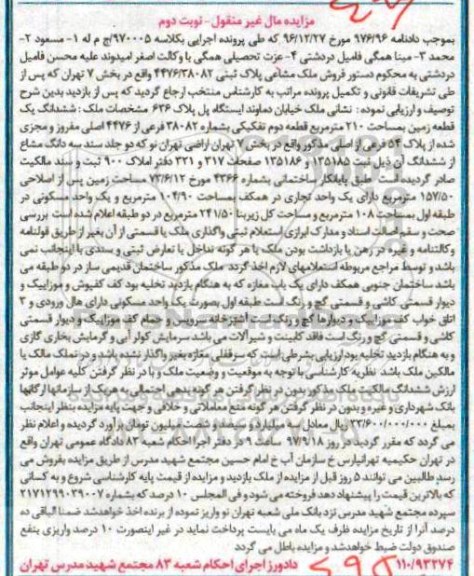 مزایده مال غیر منقول - نوبت دوم
بموجب دادنامه ۹۷۶/۹۶ مورخ ۹۶/۱۲/۲۷ که طی پرونده اجرایی بکلاسه ۹۷۰۰۰۵/ج م له ۱- مسعود ۲-
محمد ۳- مینا همگی فامیل دردشتی ۴- عزت تحصیلی همگی با وکالت اصغر امیدوند علیه محسن فامیل
دردشتی به محکوم دستور فروش ملک مشاعی پلاک ثبتی ۴۴۷۶/۳۸۰۸۲ واقع در بخش ۷ تهران که پس از
طی تشریفات قانونی و تکمیل پرونده مراتب به کارشناس منتخب ارجاع گردید که پس از بازدید بدین شرح
توصیف و ارزیابی نموده: نشانی ملک خیابان دماوند ایستگاه پل پلاک ۶۳۶ مشخصات ملک: ششدانگ یک
قطعه زمین بمساحت ۲۱۰ مترمربع قطعه دوم تفکیکی بشماره ۳۸۰۸۲ فرعی از ۴۴۷۶ اصلی مفروز و مجزی
شده از پلاک ۵۴ فرعی از اصلی مذکور واقع در بخش ۷ تهران اراضی تهران نو که دو جلد سند سه دانگ مشاع
از ششدانگ آن ذیل ثبت ۱۳۵۱۸۵ و ۱۳۵۱۸۶ صفحات ۳۱۷ و ۳۲۱ دفتر املاک ۹۰۰ ثبت و سند مالکیت
صادر گردیده است طبق پایانکار ساختمانی بشماره ۴۳۶۶ مورخ ۷۳/۶/۱۲ مساحت زمین پس از اصلاحی
۱۵۷/۵۰ مترمربع دارای یک واحد تجاری در همکف بمساحت ۱۰۴/۹۰ مترمربع و یک واحد مسکونی در
طبقه اول بمساحت ۱۰۸ مترمربع و مساحت کل زیربنا ۲۴۱/۵۰ مترمربع در دو طبقه اعلام شده است بررسی
صحت و سقم اصالت اسناد و مدارک ابرازی استعلام ثبتی واگذاری ملک یا قسمتی از آن بغیر از طریق قولنامه
وکالتنامه و غیره در رهن یا بازداشت بودن ملک یا هر گونه تداخل یا تعارض ثبتی و سندی با اینجانب نمی
باشد و توسط مراجع مربوطه استعلامهای لازم اخذ گردد. ملک مذکور ساختمان قدیمی ساز در دو طبقه می
باشد ساختمان جنوبی همکف دارای یک باب مغازه که به هنگام بازدید تخلیه بود کف کفپوش و موزاییک و
دیوار قسمتی کاشی و قسمتی گچ و رنگ است طبقه اول بصورت یک واحد مسکونی دارای هال ورودی و ۳
اتاق خواب کف موزاییک و دیوارها گچ و رنگ است آشپزخانه سرویس و حمام کف موزاییک و دیوار قسمتی
کاشی و قسمتی گچ و رنگ است فاقد کابینت و شیرآلات می باشد سرمایش کولر آبی و گرمایش بخاری گازی
و به هنگام بازدید تخلیه بود ارزیابی بشرطی است که سرقفلی مغازه بغیر واگذار نشده باشد و در تملک مالک یا
مالکین ملک باشد نظریه کارشناسی با توجه به موقعیت و وضعیت ملک و با در نظر گرفتن کلیه عوامل موثر
ارزش ششدانگ مالکیت ملک مذکور بدون در نظر گرفتن هر گونه بدهی احتمالی به هریک از سازمانها ارگانها
بانک شهرداری و غیره و بدون در نظر گرفتن هر گونه منع معاملاتی و خلافی و جهت پایه مزایده بنظر اینجانب
بمبلغ ۲۳/۶۰۰/۰۰۰/۰۰۰ ریال معادل دو میلیارد و سیصد و شصت میلیون تومان برآورد گردیده و اعلام نظر
می گردد که مقرر گردید در روز ۹۷/۹/۱۸ ساعت ۹ در دفتر اجرا احکام شعبه ۸۳ دادگاه عمومی تهران واقع
در تهران حکیمیه تهرانپارس خ سازمان آب خ امام حسین مجتمع شهید مدرس از طریق مزایده بفروش می
رسد طالبین می توانند ۵ روز قبل از مزایده از ملک بازدید و مزایده از قیمت پایه کارشناسی شروع و به کسانی
که بالاترین قیمت را پیشنهاد دهد فروخته می شود و فی المجلس ۱۰ درصد که بشماره ۲۱۷۱۲۹۹۰۳۹۰۰۷
سپرده مجتمع شهید مدرس نزد بانک ملی شعبه تهران نو واریز نموده از برنده اخذ خواهد شد ضمنا الباقی ده
درصد آنرا از تاریخ مزایده ظرف یک ماه می بایست پرداخت نماید در غیر اینصورت ۱۰ درصد واریزی بنفع
صندوق دولت ضبط خواهد شد و مزایده باطل می گردد
۱۱۰/۹۳۲۷۴ دادورز اجرای احکام شعبه ۸۳ مجتمع شهید مدرس تهران